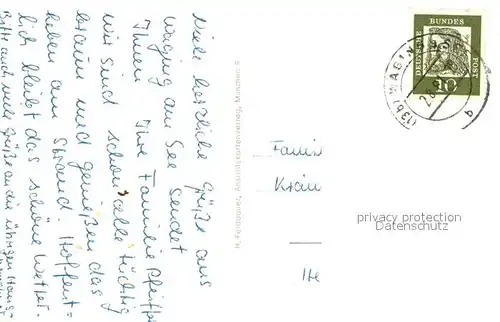 Viele herzliche Grüße aus
Waging am See sendet
Ihnen Ihre Familie Pfeiffer
wir sind schon alle tüchtig
braun und genießen das
Leben am Strand. Hoffent=
lich bleibt das schöne Wetter.
Bitte auch viele Grüße an die übrigen Haus=
H. Feldbauer, Ansichtskartenverlag, München
DEUTSCHE
BUNDES
POST
10
(13b) WAGIN
Famil
Kräu
privacy protection
Datenschutz